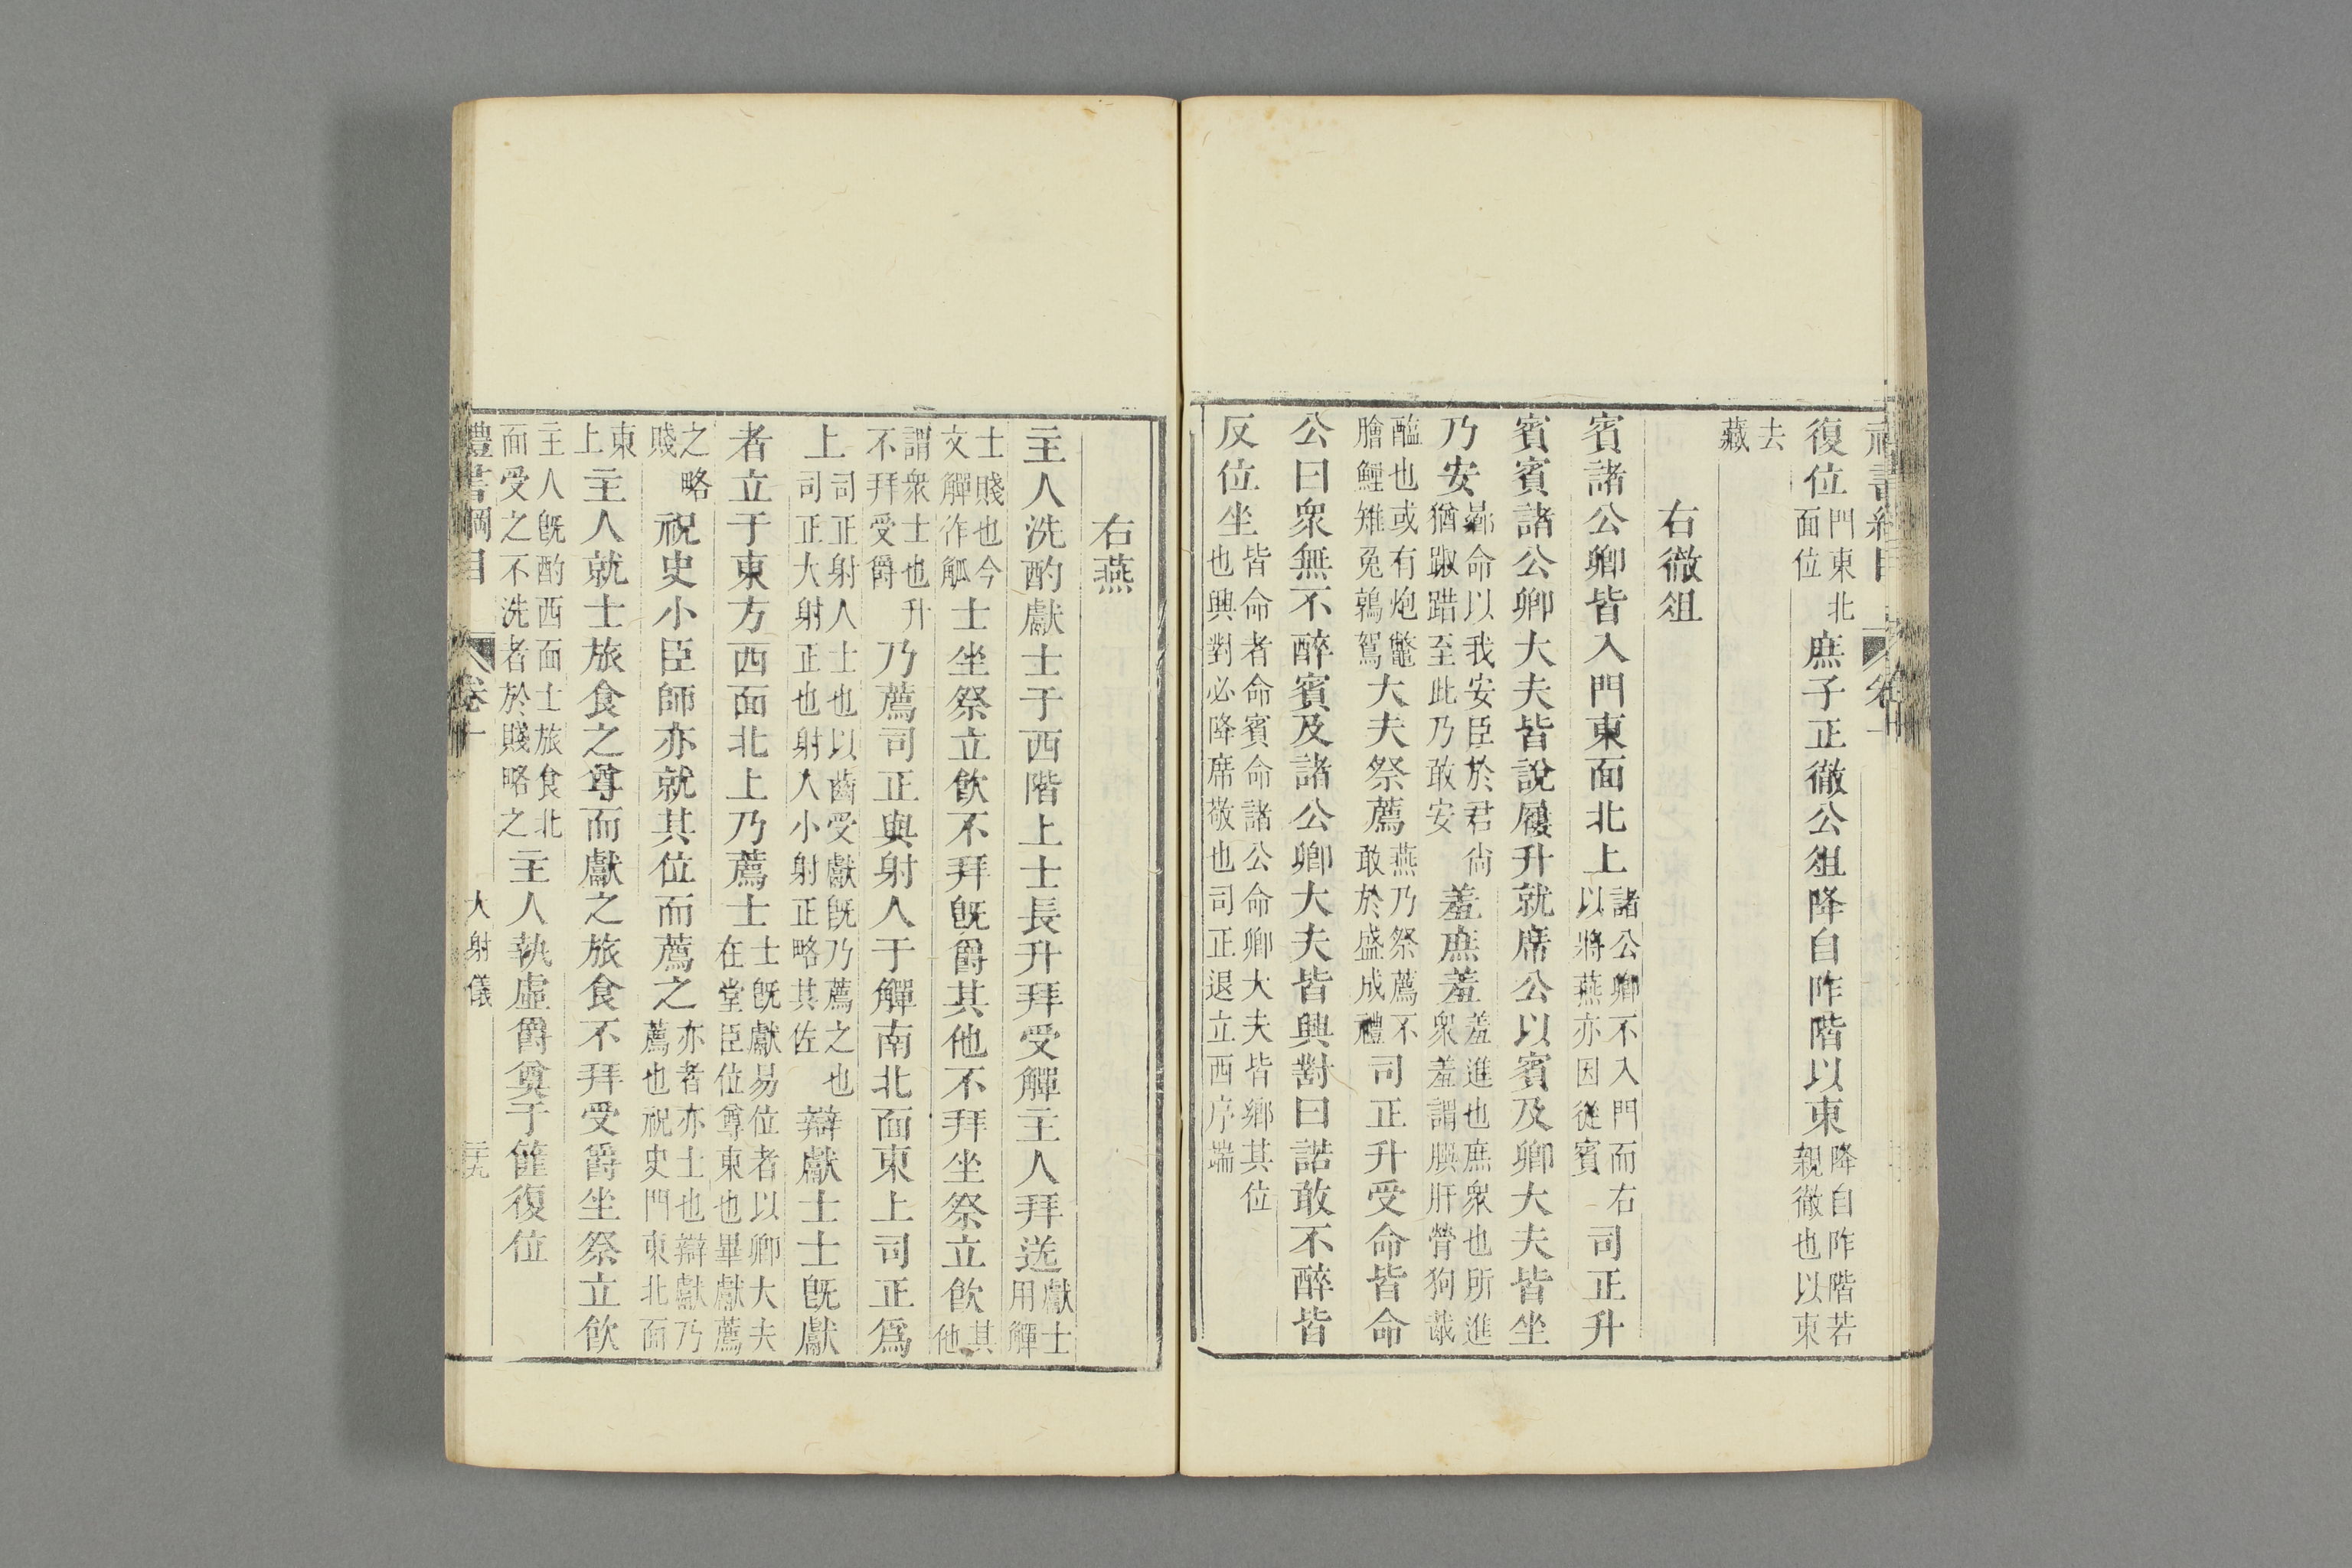 復位門東北面位庶子正徹公俎降自阼階以東降自阼階若親徹也以東
去藏
右徹俎
賓諸公卿皆入門東面北上諸公卿不入門而右以將燕亦因從賓司正升
賓賓諸公卿大夫皆說屨升就席公以賓及卿大夫皆坐
乃安鄉命以我安臣於君尙猶踧踖至此乃敢安羞庶羞羞進也庶衆也所進衆羞謂肝膋狗胾
醢也或有炮鼈膾鯉雉兔鶉鴽大夫祭薦燕乃祭薦不敢於盛成禮司正升受命皆命
公曰衆無不醉賓及諸公卿大夫皆興對曰諾敢不醉皆
反位坐皆命者命賓命諸公命卿大夫皆鄉其位也興對必降席敬也司正退立西序端
右燕
主人洗酌獻士于西階上士長升拜受觶主人拜送獻士用觶
士賤也今文觶作觚士坐祭立飲不拜既爵其他不拜坐祭立飲其他
謂衆士也升不拜受爵乃薦司正與射人于觶南北面東上司正爲
上司正射人士也以齒受獻既乃薦之也司正大射正也射人小射正略其佐辯獻士士既獻
者立于東方西面北上乃薦士士既獻易位者以卿大夫在堂臣位尊東也畢獻薦
之略賤祝史小臣師亦就其位而薦之亦者亦士也辯獻乃薦也祝史門東北面
東上主人就士旅食之尊而獻之旅食不拜受爵坐祭立飲
主人既酌西面士旅食北面受之不洗者於賤略之主人執虛爵奠于篚復位
禮書綱目 卷十 大射儀